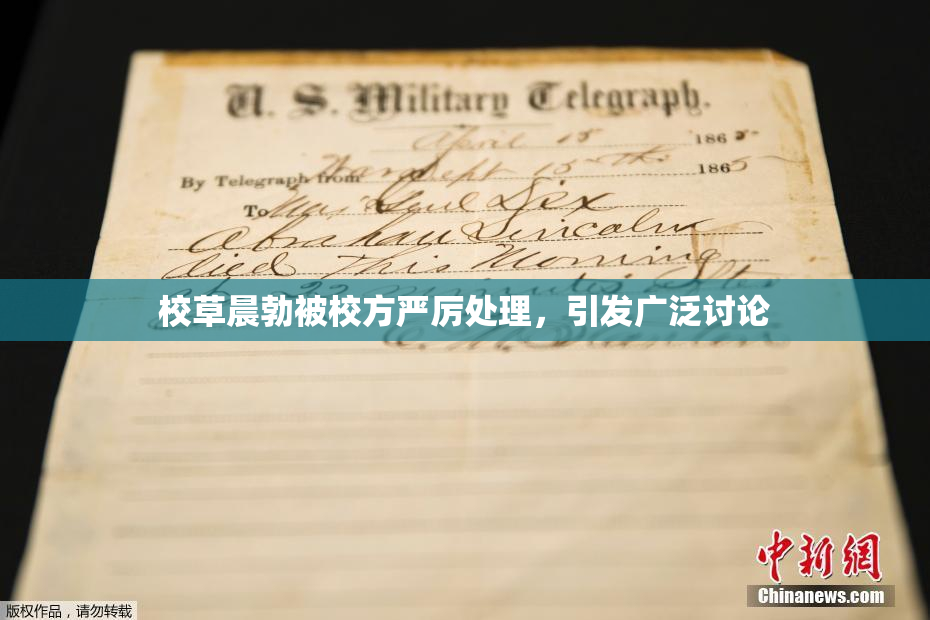 U. S. Military Telegraph.
April 15 1865
By Telegraph from War Dept 15th 1865
To Maj Genl Dix
Abraham Lincoln
died this Morning
at 22 minutes after
校草晨勃被校方严厉处理，引发广泛讨论
中新网
Chinanews.com
版权作品，请勿转载